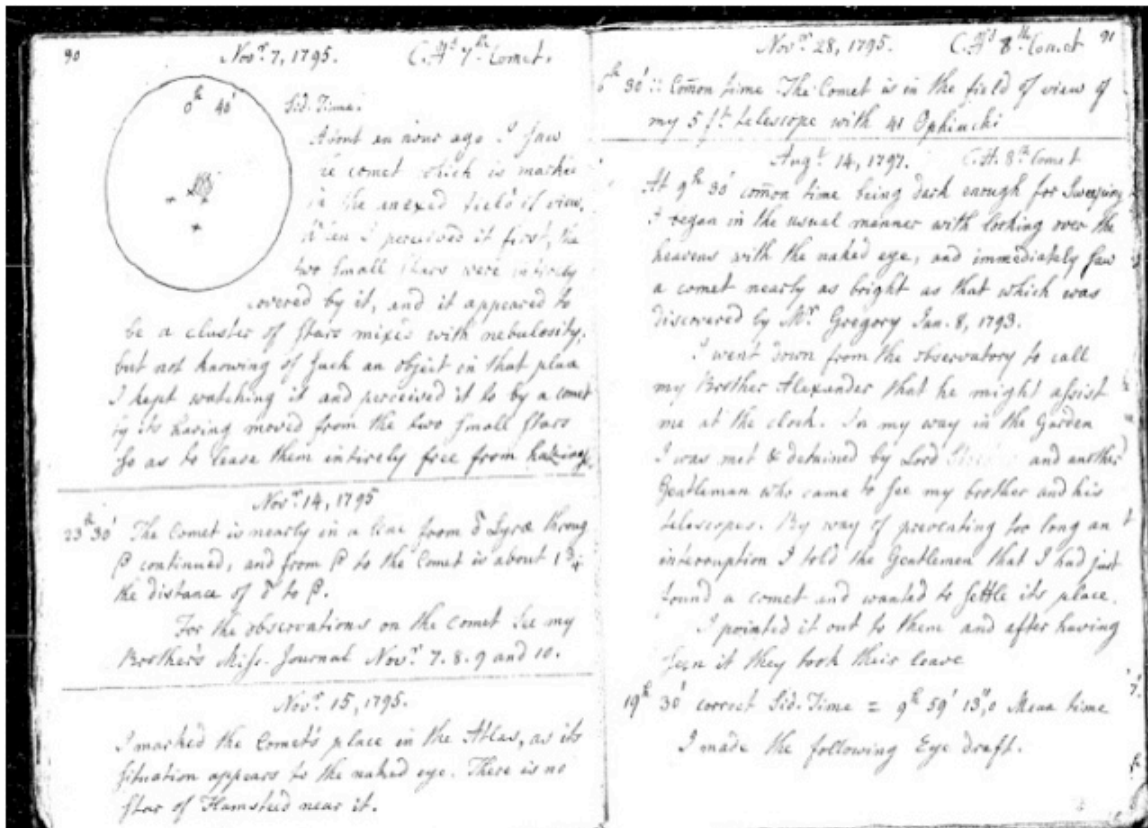 90
Nov.r 7, 1795. C. H.s 7.th Comet.
0h 40' Sid. Time.
About an hour ago I saw
the comet which is marked
in the anexed field of view.
When I perceived it first, the
two small stars were intirely
covered by it, and it appeared to
be a cluster of stars mixed with nebulosity,
but not knowing of such an object in that place
I kept watching it and perceived it to by a comet
by its having moved from the two small stars
so as to leave them intirely free from
Nov.r 14, 1795
23h 30' The Comet is nearly in a line from δ Lyræ throug
β continued, and from β to the Comet is about 1 3/4
the distance of δ to β.
For the observations on the comet see my
Brother's Miss. Journal Nov.r 7. 8. 9 and 10.
Nov.r 15, 1795.
I marked the Comet's place in the Atlas, as its
situation appears to the naked eye. There is no
star of Flamsteed near it.
91
Nov.r 28, 1795. C. H.s 8.th Comet
6h 30' :: Com̄on time The Comet is in the field of view of
my 5 ft telescope with 41 Ophiuchi
Aug.t 14, 1797. C. H. 8.th Comet
At 9h 30' com̄on time being dark enough for sweeping
I began in the usual manner with looking over the
heavens with the naked eye, and immediately saw
a comet nearly as bright as that which was
discovered by Mr. Gregory Jan. 8, 1793.
I went down from the observatory to call
my Brother Alexander that he might assist
me at the clock. In my way in the Garden
I was met & detained by Lord and another
Gentleman who came to see my brother and his
telescopes. By way of preventing too long an
interruption I told the Gentlemen that I had just
found a comet and wanted to settle its place.
I pointed it out to them and after having
seen it they took their leave
19h 30' correct Sid. Time = 9h 59' 13",0 Mean time
I made the following Eye draft.